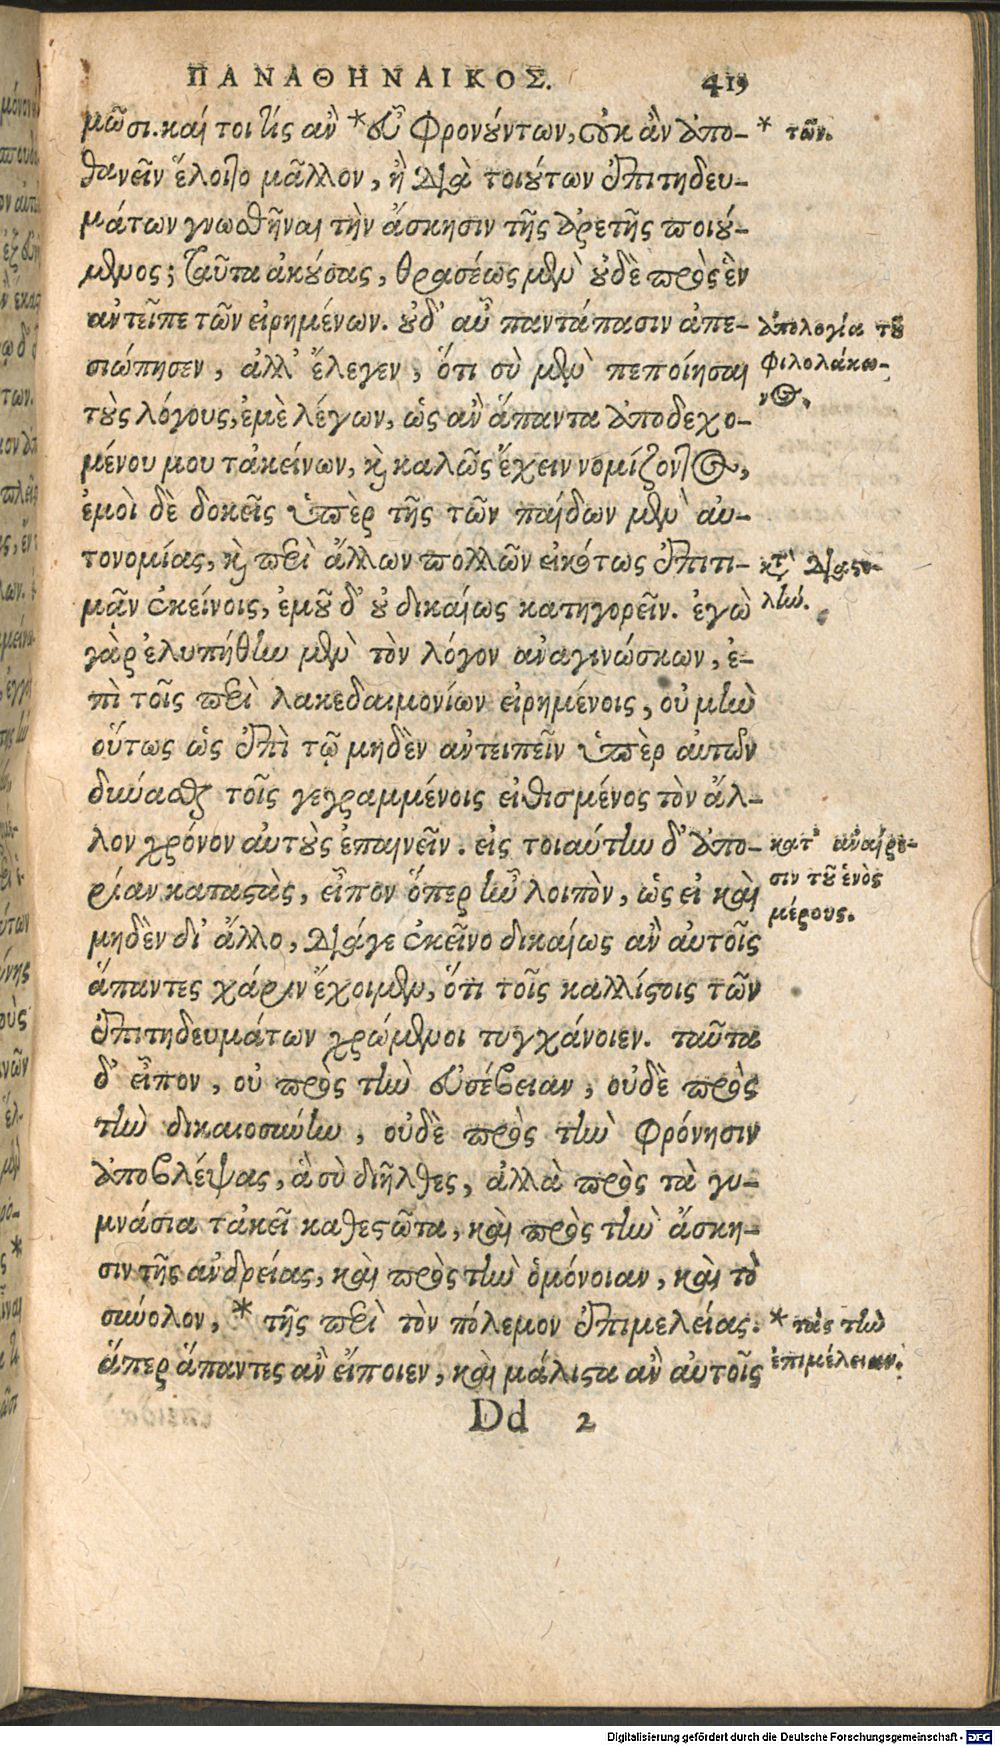 ΠΑΝΑΘΗΝΑΙΚΟΣ. 419
μῶσι. καί τοι τίς ἂν * εὖ φρονούντων, οὐκ ἂν ἀπο-
* τῶν.
θανεῖν ἕλοιτο μᾶλλον, ἢ διὰ τοιούτων ἐπιτηδευ-
μάτων γνωσθῆναι τὴν ἄσκησιν τῆς ἀρετῆς ποιού-
μενος; ταῦτα ἀκούσας, θρασέως μὲν οὐδὲ πρὸς ἓν
ἀντεῖπε τῶν εἰρημένων. οὐδ' αὖ παντάπασιν ἀπε-
ἀπολογία τοῦ
σιώπησεν, ἀλλ' ἔλεγεν, ὅτι σὺ μὲν πεποίησαι
φιλολάκω-
νος.
τοὺς λόγους, ἐμὲ λέγων, ὡς ἂν ἅπαντα ἀποδεχο-
μένου μου τἀκείνων, καὶ καλῶς ἔχειν νομίζοντος,
ἐμοὶ δὲ δοκεῖς ὑπὲρ τῆς τῶν παίδων μὲν αὐ-
τονομίας, καὶ περὶ ἄλλων πολλῶν εἰκότως ἐπιτι-
κατὰ διαστο-
μᾷν ἐκείνοις, ἐμοῦ δ' οὐ δικαίως κατηγορεῖν. ἐγὼ
λήν.
γὰρ ἐλυπήθην μὲν τὸν λόγον ἀναγινώσκων, ἐ-
πὶ τοῖς περὶ λακεδαιμονίων εἰρημένοις, οὐ μὴν
οὕτως ὡς ἐπὶ τῷ μηδὲν ἀντειπεῖν ὑπὲρ αὐτῶν
δύνασθαι τοῖς γεγραμμένοις εἰθισμένος τὸν ἄλ-
λον χρόνον αὐτοὺς ἐπαινεῖν. εἰς τοιαύτην δ' ἀπο-
κατ' ἀναίρε-
σιν τοῦ ἑνὸς
ρίαν καταστὰς, εἶπον ὅπερ ἦν λοιπὸν, ὡς εἰ καὶ
μέρους.
μηδὲν δι' ἄλλο, διάγε ἐκεῖνο δικαίως ἂν αὐτοῖς
ἅπαντες χάριν ἔχοιμεν, ὅτι τοῖς καλλίστοις τῶν
ἐπιτηδευμάτων χρώμενοι τυγχάνοιεν. ταῦτα
δ' εἶπον, οὐ πρὸς τὴν εὐσέβειαν, οὐδὲ πρὸς
τὴν δικαιοσύνην, οὐδὲ πρὸς τὴν φρόνησιν
ἀποβλέψας, ἃ σὺ διῆλθες, ἀλλὰ πρὸς τὰ γυ-
μνάσια τἀκεῖ καθεστῶτα, καὶ πρὸς τὴν ἄσκη-
σιν τῆς ἀνδρείας, καὶ πρὸς τὴν ὁμόνοιαν, καὶ τὸ
σύνολον, * τῆς περὶ τὸν πόλεμον ἐπιμελείας.
* πρὸς τὴν
ἅπερ ἅπαντες ἂν εἴποιεν, καὶ μάλιστα ἂν αὐτοῖς
ἐπιμέλειαν.
Dd 2
Digitalisierung gefördert durch die Deutsche Forschungsgemeinschaft - DFG